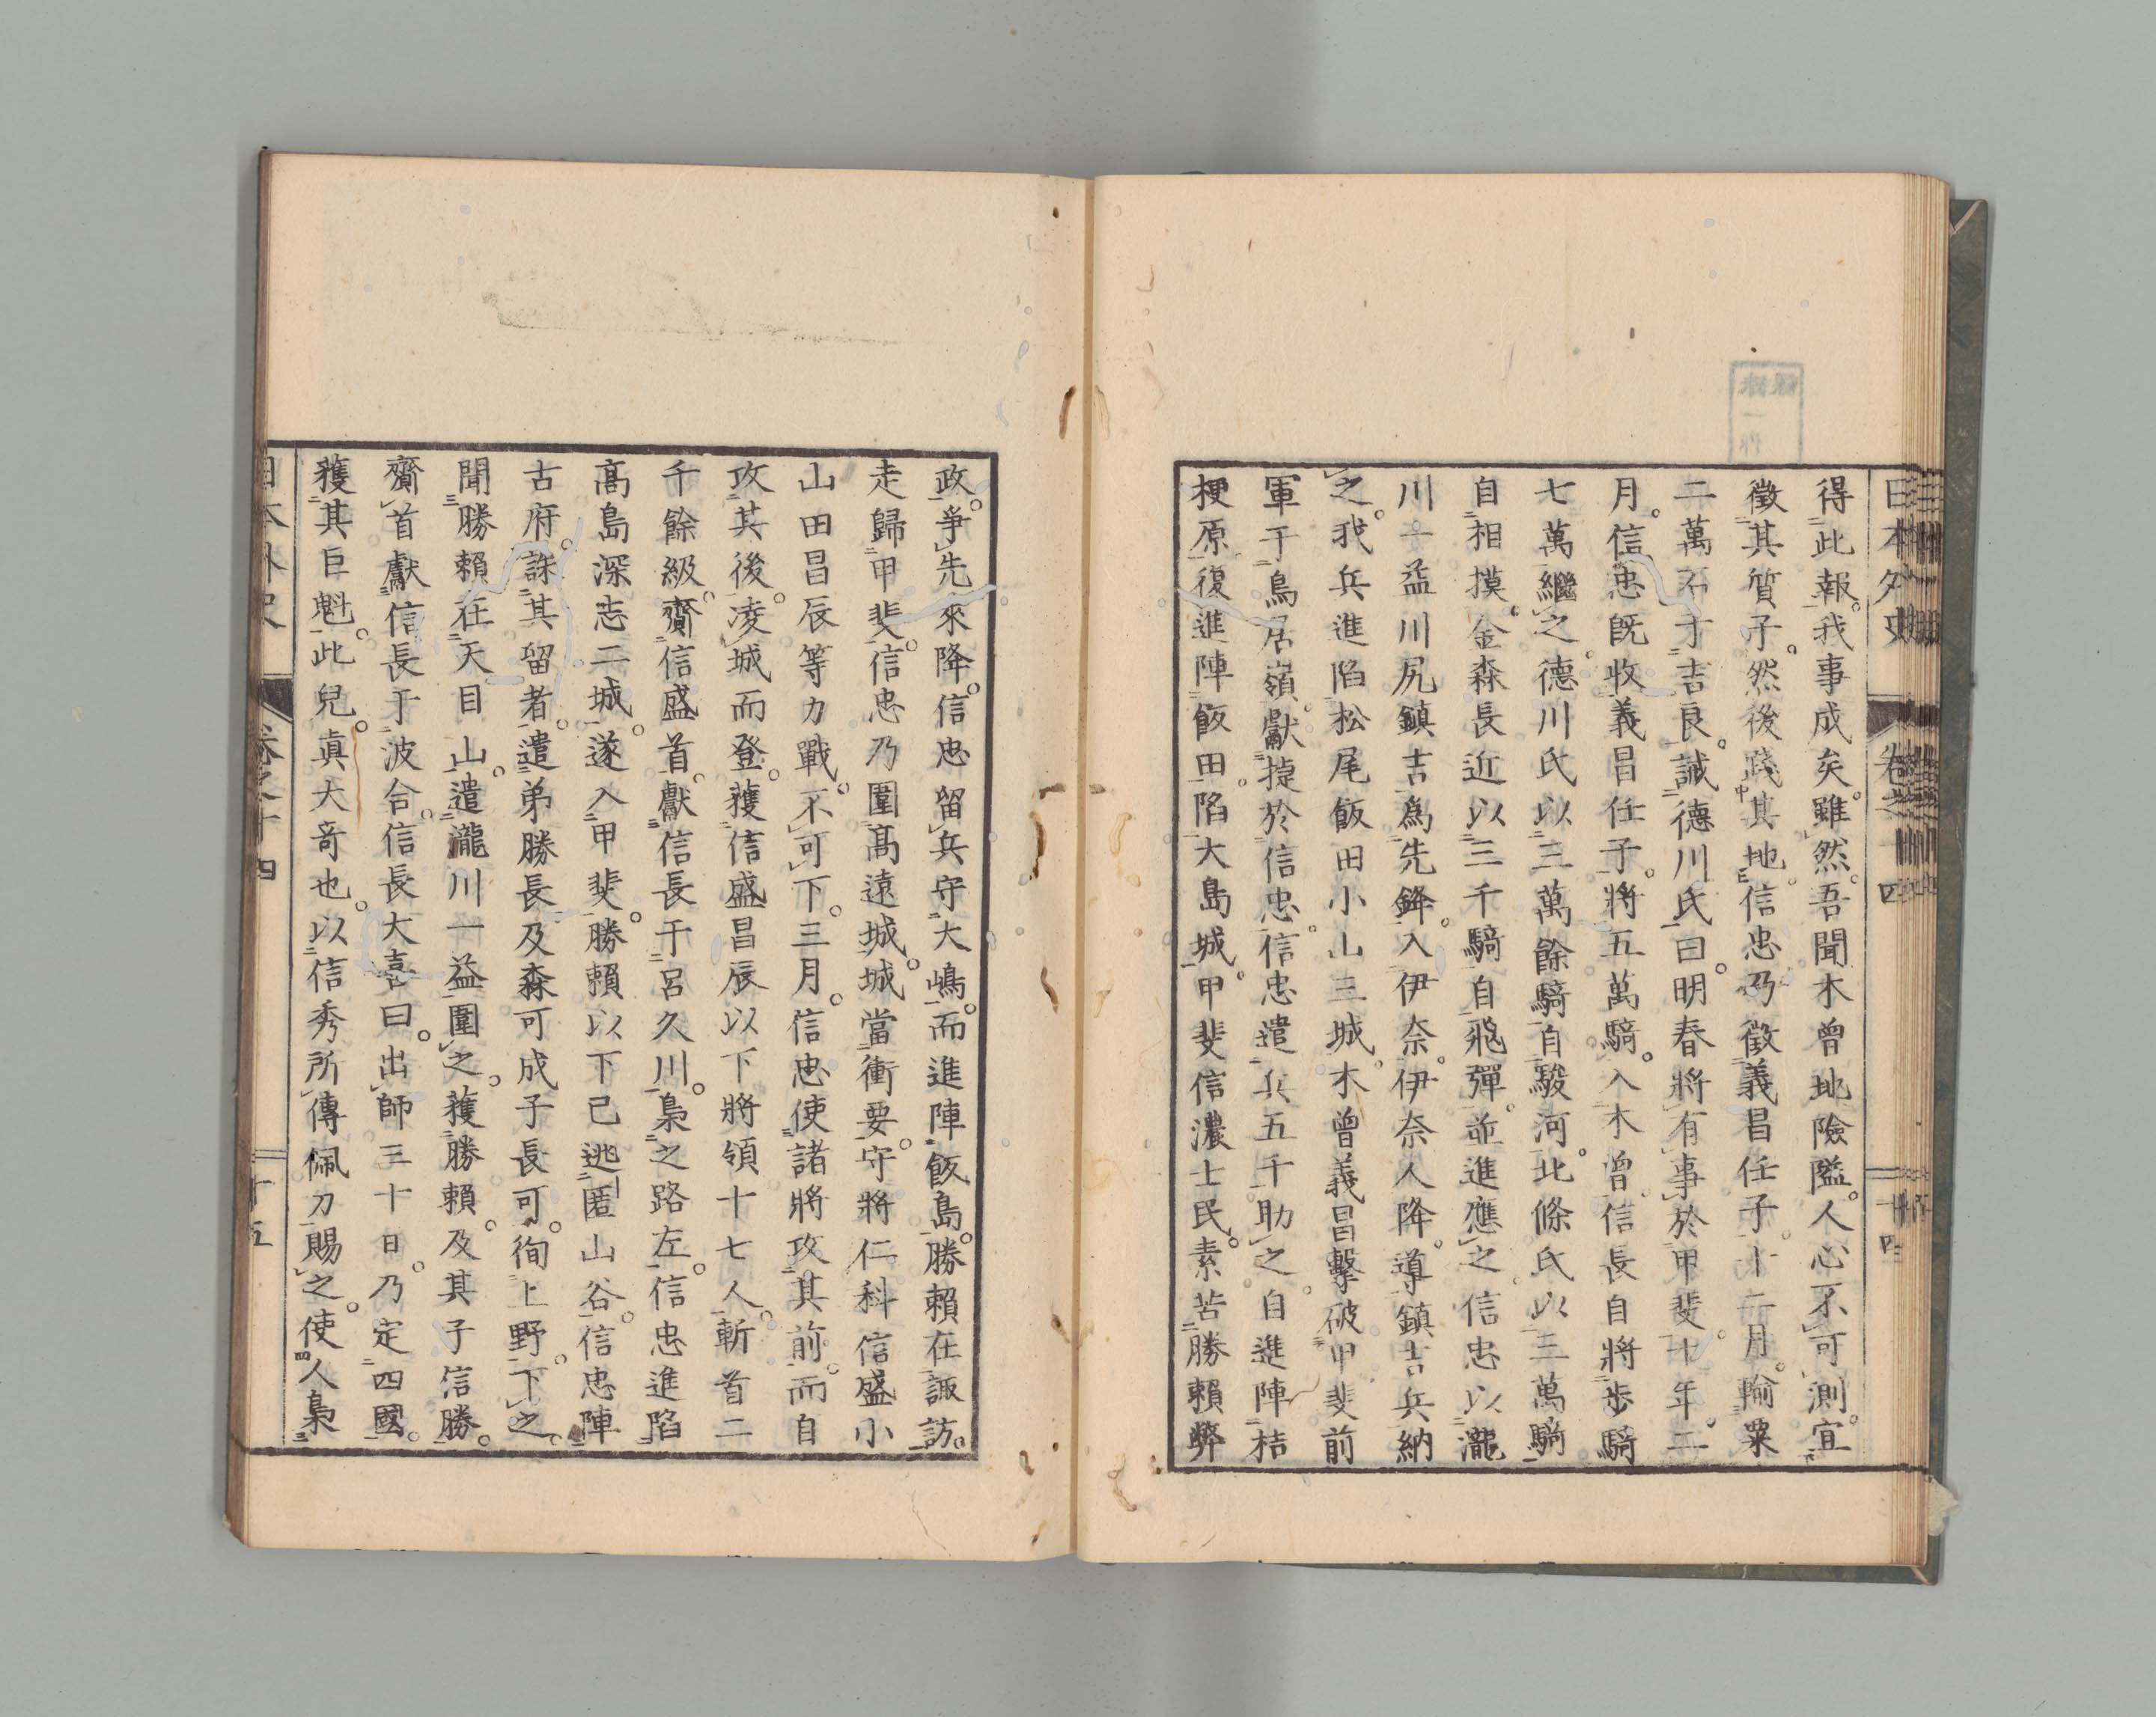 日本外史 卷之十四 十四
得此報。我事成矣。雖然。吾聞木曾地險隘。人心不可測。宜
徵其質子。然後踐其地。信忠乃徵義昌任子。十二月。輸粟
二萬石于吉良。誡德川氏曰。明春將有事於甲斐。十年。二
月。信忠既收義昌任子。將五萬騎。入木曾。信長自將步騎
七萬繼之。德川氏以三萬餘騎自駿河。北條氏以三萬騎
自相摸。金森長近以三千騎自飛彈。並進應之。信忠以瀧
川一益川尻鎮吉為先鋒。入伊奈。伊奈人降。導鎮吉兵納
之。我兵進陷松尾飯田小山三城。木曾義昌擊破甲斐前
軍于鳥居嶺。獻捷於信忠。信忠遣兵五千助之。自進陣桔
梗原。復進陣飯田。陷大島城。甲斐信濃士民。素苦勝賴弊
政。爭先來降。信忠留兵守大嶋。而進陣飯島。勝賴在諏訪。
走歸甲斐。信忠乃圍高遠城。城當衝要。守將仁科信盛小
山田昌辰等力戰。不可下。三月。信忠使諸將攻其前。而自
攻其後。凌城而登。獲信盛昌辰以下將領十七人。斬首二
千餘級。齎信盛首。獻信長于呂久川。梟之路左。信忠進陷
高島深志二城。遂入甲斐。勝賴以下已逃匿山谷。信忠陣
古府。誅其留者。遣弟勝長及森可成子長可。徇上野。下之。
聞勝賴在天目山。遣瀧川一益圍之。獲勝賴。及其子信勝。
齎首獻信長于波合。信長大喜曰。出師三十日。乃定四國。
獲其巨魁。此兒。真大奇也。以信秀所傳佩刀賜之。使人梟
日本外史 卷之十四 十五